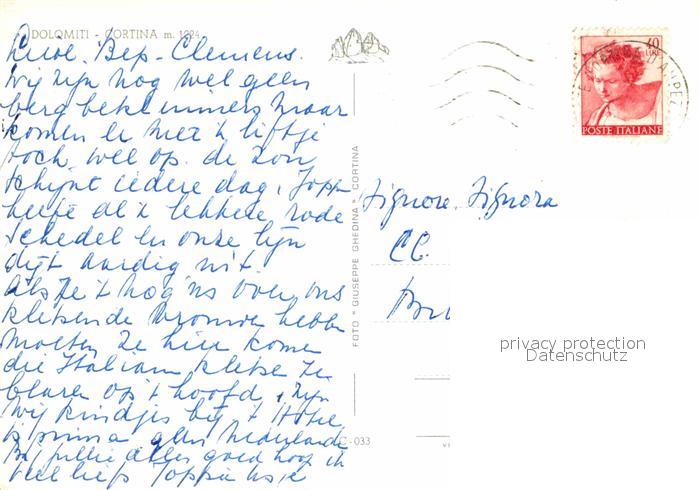 DOLOMITI - CORTINA m. 1224
Bep. Clemens.
Wij zijn nog wel geen
berg beklimmers maar
komen er met 't liftje
toch wel op. de zon
schijnt iedere dag, Jopp
heeft al 'n lekkere rode
schedel en onze lijn
dijt aardig uit.
Als ze 't nog 'ns over ons
kletsende vrouwen hebben
moeten ze hier komen
die Italianen kletse je
blaren op 't hoofd,
wij kindjes bij 't Hotel
is prima geen Nederlands
jullie alles goed hoop ik
veel liefs
FOTO * GIUSEPPE GHEDINA * CORTINA
C - 033
40
LIRE
POSTE ITALIANE
D'AMPEZ
Signore. Signora
CC.
privacy protection
Datenschutz